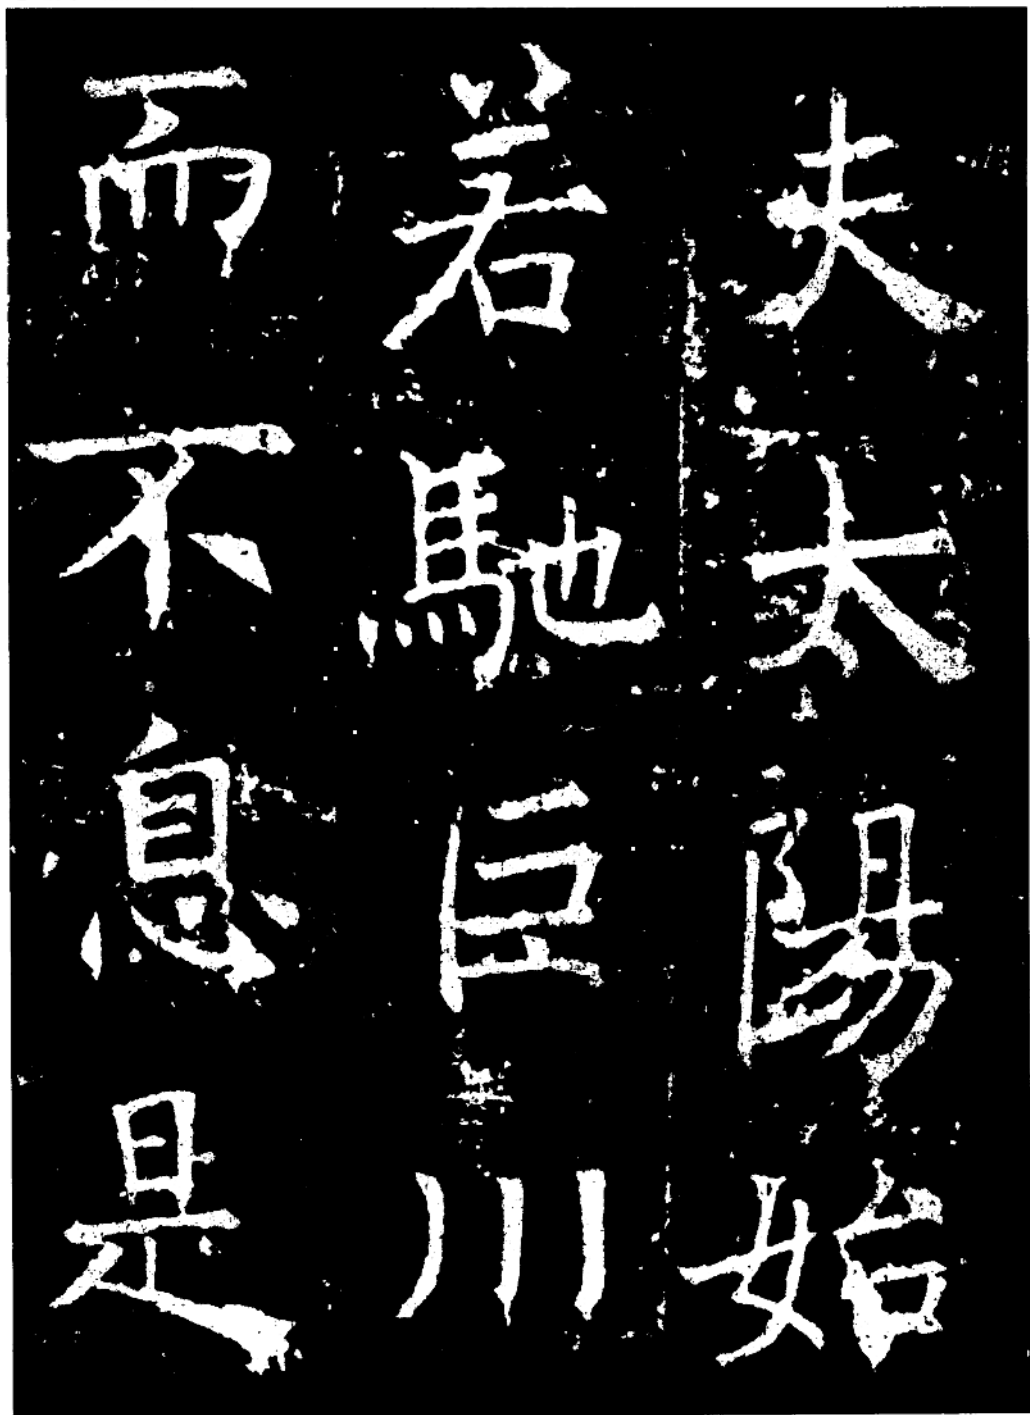 夫太陽始
若馳巨川
而不息是